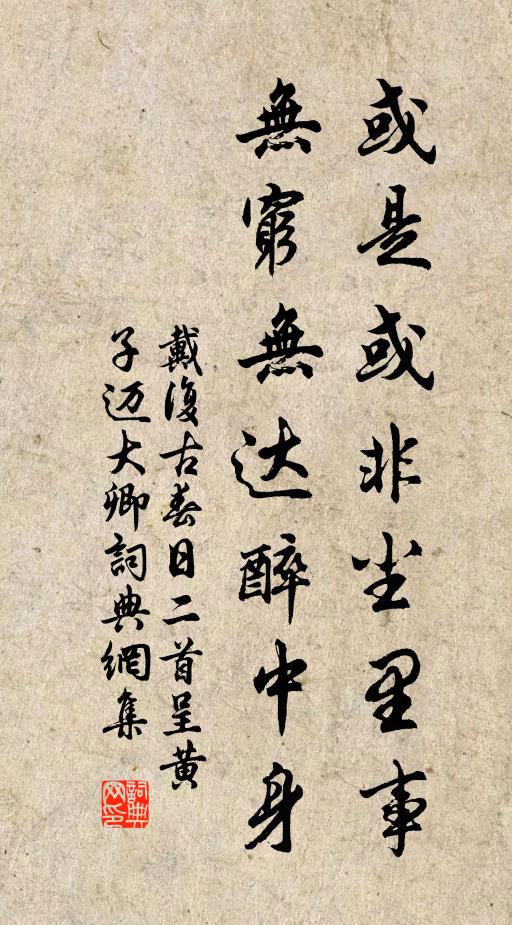 或是或非尘里事
無窮無达醉中身
戴復古春日二首呈黄
子迈大卿詞典網集
詞典网印